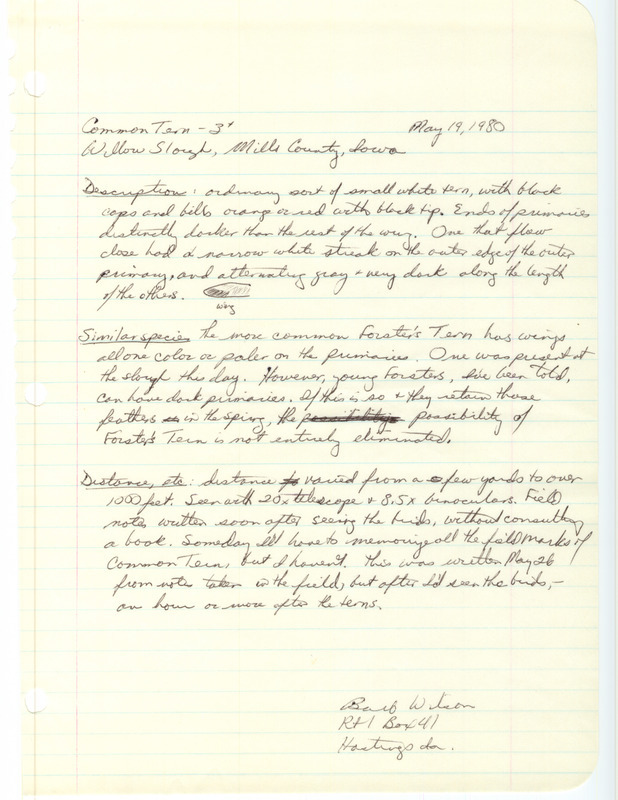 Common Tern - 3+ May 19, 1980
Willow Slough, Mills County, Iowa
Description: ordinary sort of small white tern, with black
caps and bills orange or red with black tip. Ends of primaries
distinctly darker than the rest of the wing. One that flew
close had a narrow white streak on the outer edge of the outer
primary, and alternating gray + very dark along the length
of the others.
wing
Similar species the more common Forster's Tern has wings
all one color or paler on the primaries. One was present at
the slough this day. However, young Forsters, I've been told,
can have dark primaries. If this is so + they retain those
feathers in the spring, the possibility possibility of
Forster's Tern is not entirely eliminated.
Distance, etc: distance varied from a few yards to over
1000 feet. Seen with 20x telescope + 8.5x binoculars. Field
notes written soon after seeing the birds, without consulting
a book. Someday I'll have to memorize all the field marks of
Common Tern, but I haven't. This was written May 26
from notes taken in the field, but after I'd seen the birds,-
an hour or more after the terns.
Barb Wilson
Rt 1 Box 41
Hastings Ia.